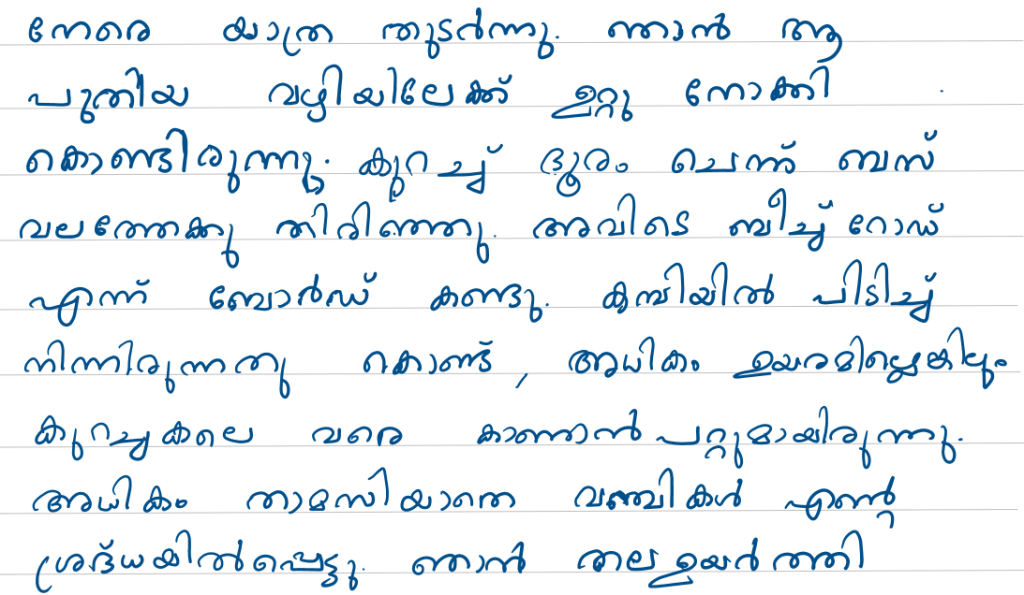 നേരെ യാത്ര തുടർന്നു. ഞാൻ ആ
പുതിയ വഴിയിലേക്ക് ഉറ്റു നോക്കി
കൊണ്ടിരുന്നു. കുറച്ച് ദൂരം ചെന്ന് ബസ്
വലത്തേക്കു തിരിഞ്ഞു. അവിടെ ബീച്ച് റോഡ്
എന്ന് ബോർഡ് കണ്ടു. കമ്പിയിൽ പിടിച്ച്
നിന്നിരുന്നതു കൊണ്ട്, അധികം ഉയരമില്ലെങ്കിലും
കുറച്ചകലെ വരെ കാണാൻ പറ്റുമായിരുന്നു.
അധികം താമസിയാതെ വഞ്ചികൾ എന്റെ
ശ്രദ്ധയിൽപ്പെട്ടു. ഞാൻ തല ഉയർത്തി